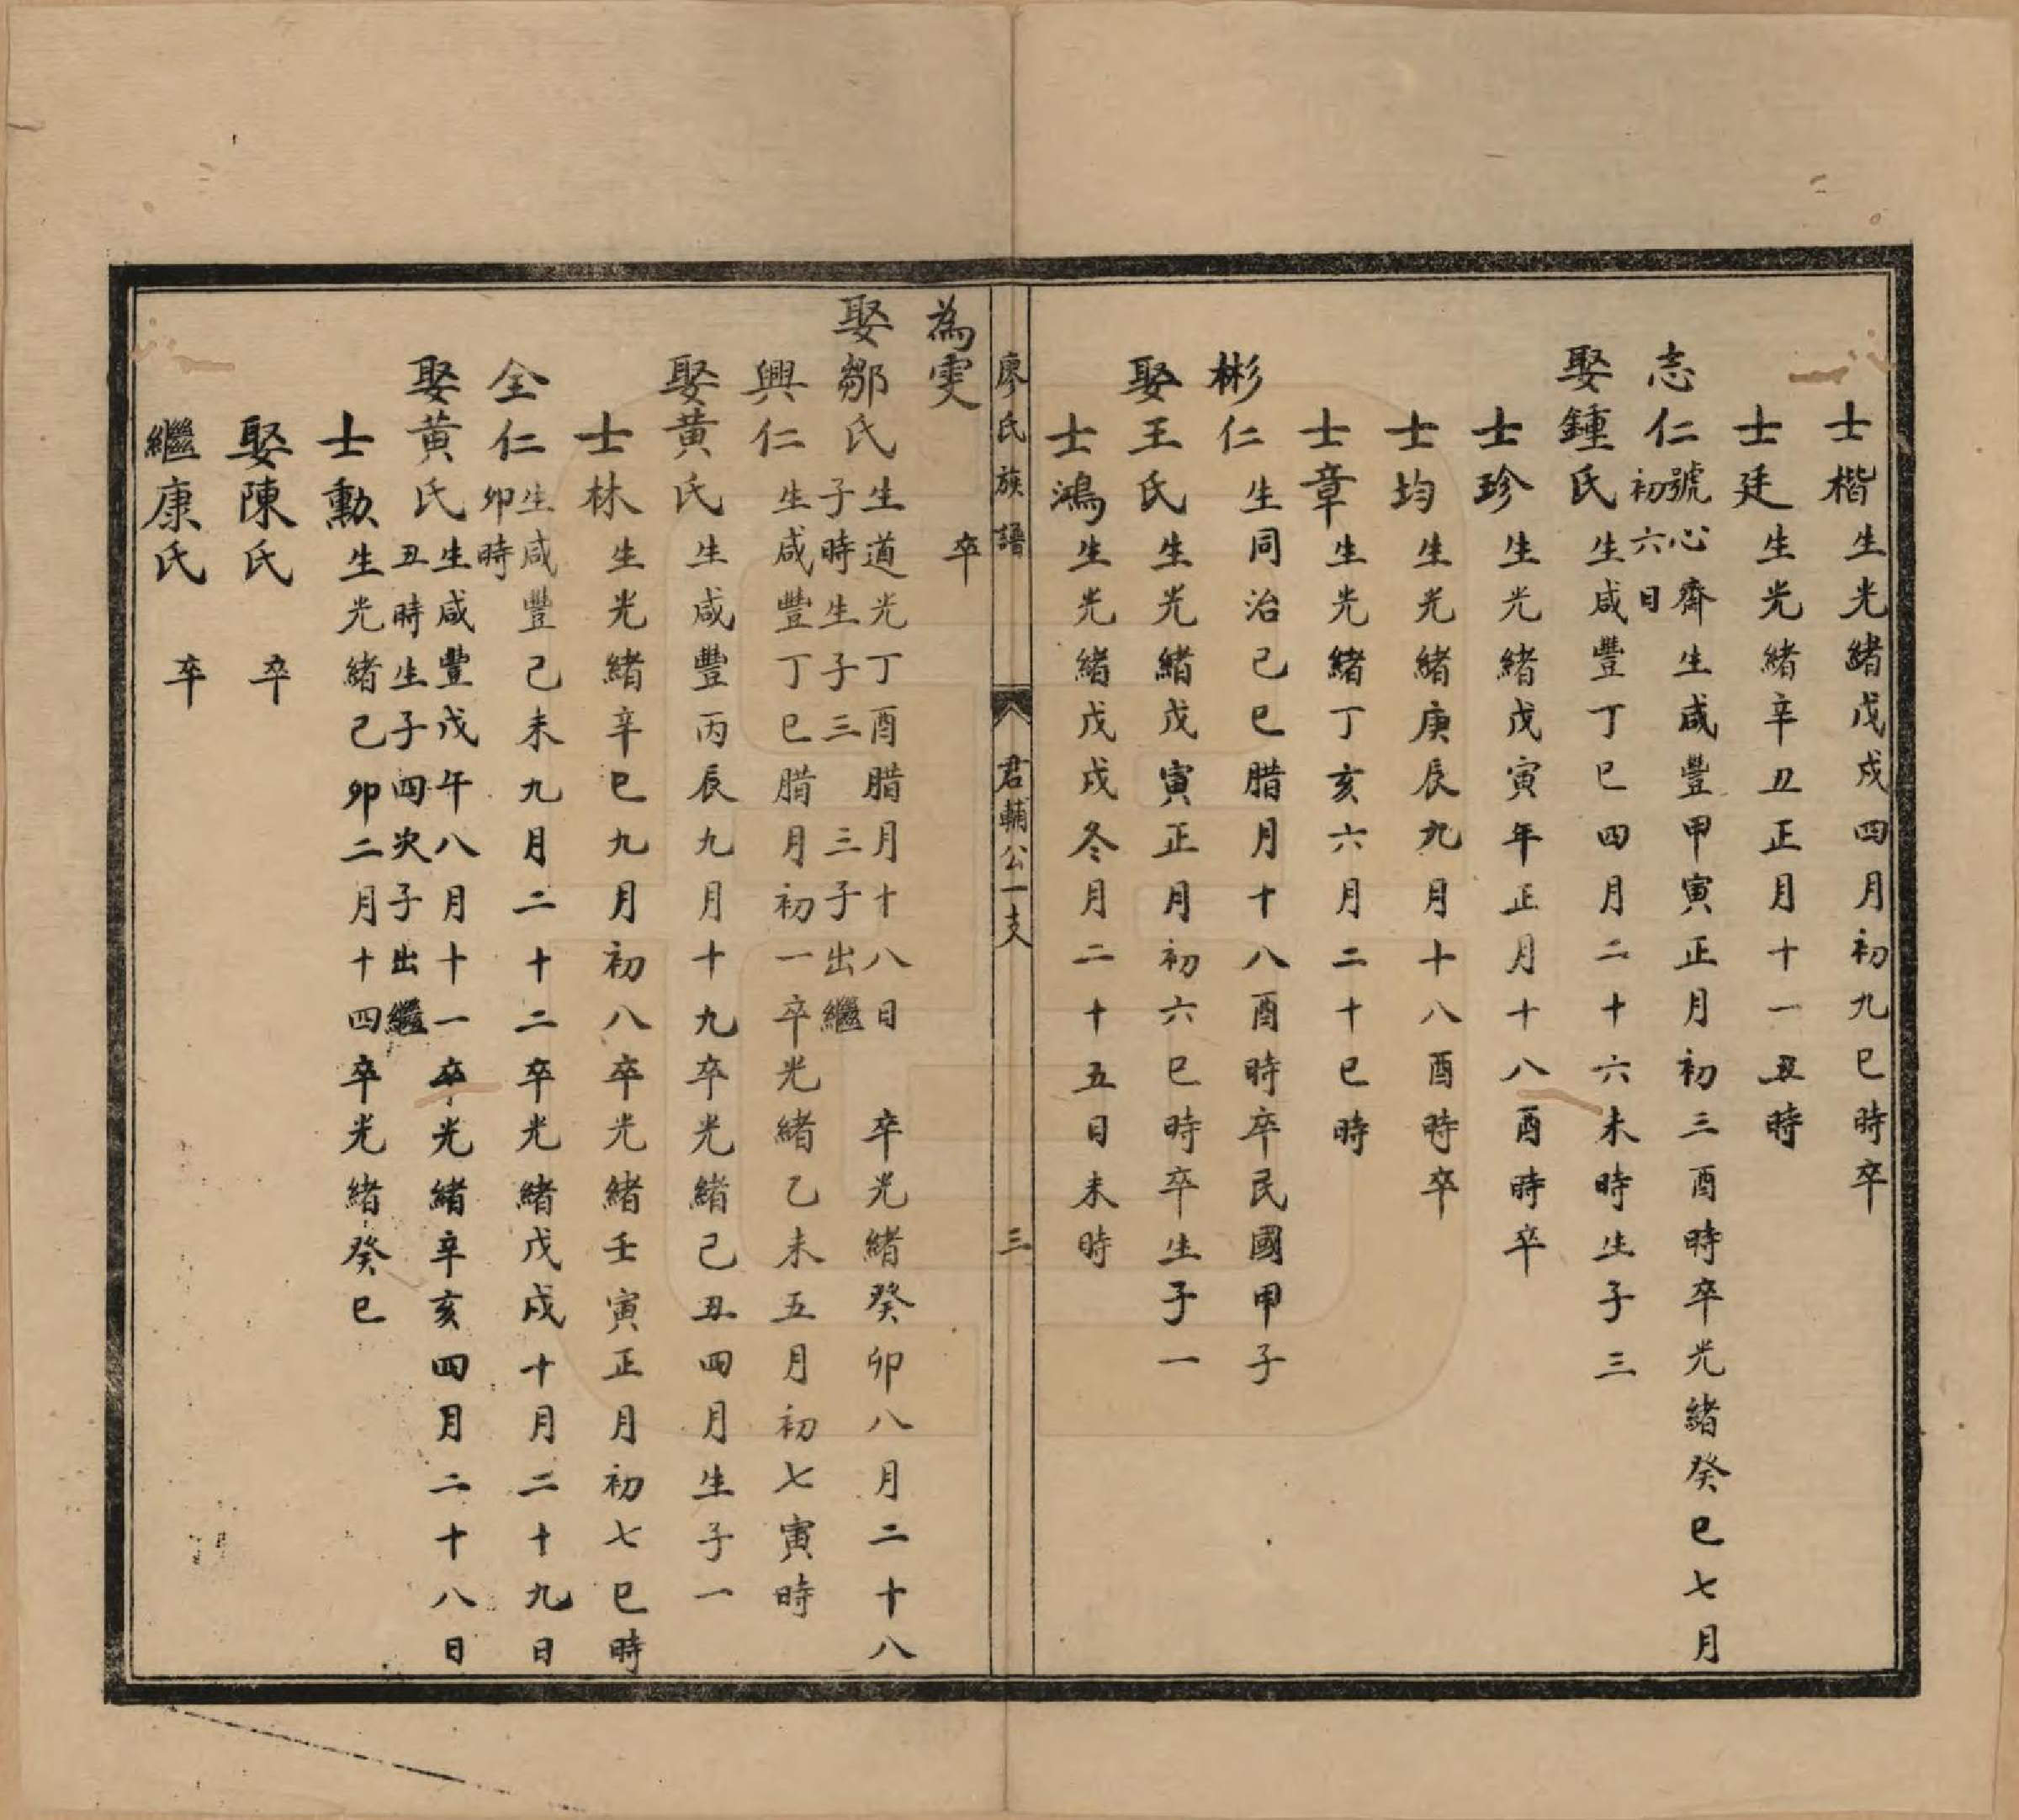 士楷生光緒戊戌四月初九巳時卒
士廷生光緒辛丑正月十一丑時
志仁號心齋生咸豐甲寅正月初三酉時卒光緒癸巳七月
初六日
娶鍾氏生咸豐丁巳四月二十六未時生子三
士珍生光緒戊寅年正月十八酉時卒
士均生光緒庚辰九月十八酉時卒
士章生光緒丁亥六月二十巳時
彬仁生同治己巳腊月十八酉時卒民國甲子
娶王氏生光緒戊寅正月初六巳時卒生子一
士鴻生光緒戊戌冬月二十五日未時
廖氏族譜 君輔公一支 三
為雯 卒
娶鄒氏生道光丁酉腊月十八日 卒光緒癸卯八月二十八
子時生子三 三子出繼
興仁生咸豐丁巳腊月初一卒光緒乙未五月初七寅時
娶黄氏生咸豐丙辰九月十九卒光緒己丑四月生子一
士林生光緒辛巳九月初八卒光緒壬寅正月初七巳時
全仁生咸豐己未九月二十二卒光緒戊戌十月二十九日
卯時
娶黄氏生咸豐戊午八月十一卒光緒辛亥四月二十八日
丑時生子四次子出繼
士勳生光緒己卯二月十四卒光緒癸巳
娶陳氏 卒
繼康氏 卒